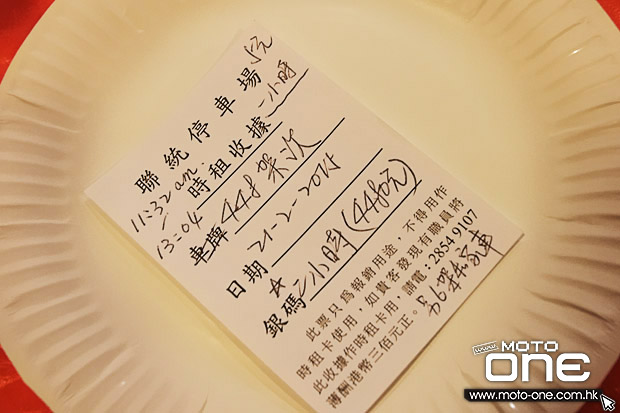 聯統停車場 5元
時租收據 一小時
11:32 am
13:04
車牌 448架次
日期 21-2-2015
銀碼 二小時(4480元)
此票只為報銷用途，不得用作
時租卡使用，如貴客發現有職員將
此收據作時租卡用，請電：2854 9107
薄酬港幣三佰元正。
www.
MOTO
ONE
www.moto-one.com.hk